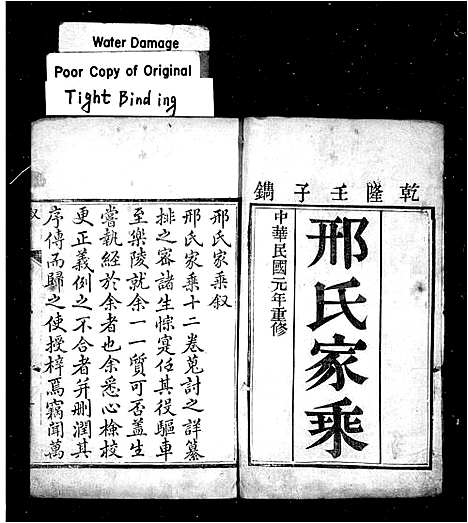 Water Damage
Poor Copy of Original
Tight Binding
乾隆壬子鐫
邢氏家乘
中華民國元年重修
邢氏家乘叙
邢氏家乘十二卷蒐討之詳纂
排之密諸生悰寔佔其役驅車
至樂陵就余一一質可否蓋生
嘗執經於余者也余悉心檢校
更正義例之不合者并删潤其
序傳而歸之使授梓焉竊聞萬